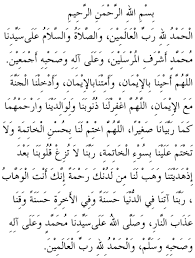 بِسْمِ اللهِ الرَّحْمٰنِ الرَّحِيْمِ
الْحَمْدُ لِلّٰهِ رَبِّ الْعَالَمِيْنَ، وَالصَّلَاةُ وَالسَّلَامُ عَلَى سَيِّدِنَا
مُحَمَّدٍ أَشْرَفِ الْمُرْسَلِيْنَ، وَعَلَى آلِهِ وَصَحْبِهِ أَجْمَعِيْنَ.
اَللّٰهُمَّ أَحْيِنَا بِالْإِيْمَانِ، وَأَمِتْنَا بِالْإِيْمَانِ، وَأَدْخِلْنَا الْجَنَّةَ
مَعَ الْإِيْمَانِ، اَللّٰهُمَّ اغْفِرْلَنَا ذُنُوْبَنَا وَلِوَالِدَيْنَا وَارْحَمْهُمَا
كَمَا رَبَّيَانَا صَغِيْرًا، اَللّٰهُمَّ اخْتِمْ لَنَا بِحُسْنِ الْخَاتِمَةِ وَلَا
تَخْتِمْ عَلَيْنَا بِسُوْءِ الْخَاتِمَةِ، رَبَّنَا لَا تُزِغْ قُلُوْبَنَا بَعْدَ
إِذْهَدَيْتَنَا وَهَبْ لَنَا مِنْ لَدُنْكَ رَحْمَةً إِنَّكَ أَنْتَ الْوَهَّابُ
، رَبَّنَا آتِنَا فِي الدُّنْيَا حَسَنَةً وَفِي الْآخِرَةِ حَسَنَةً وَقِنَا
عَذَابَ النَّارِ، وَصَلَّى اللهُ عَلَى سَيِّدِنَا مُحَمَّدٍ وَعَلَى آلِهِ
وَصَحْبِهِ وَسَلَّمَ، وَالْحَمْدُ لِلّٰهِ رَبِّ الْعَالَمِيْنَ.